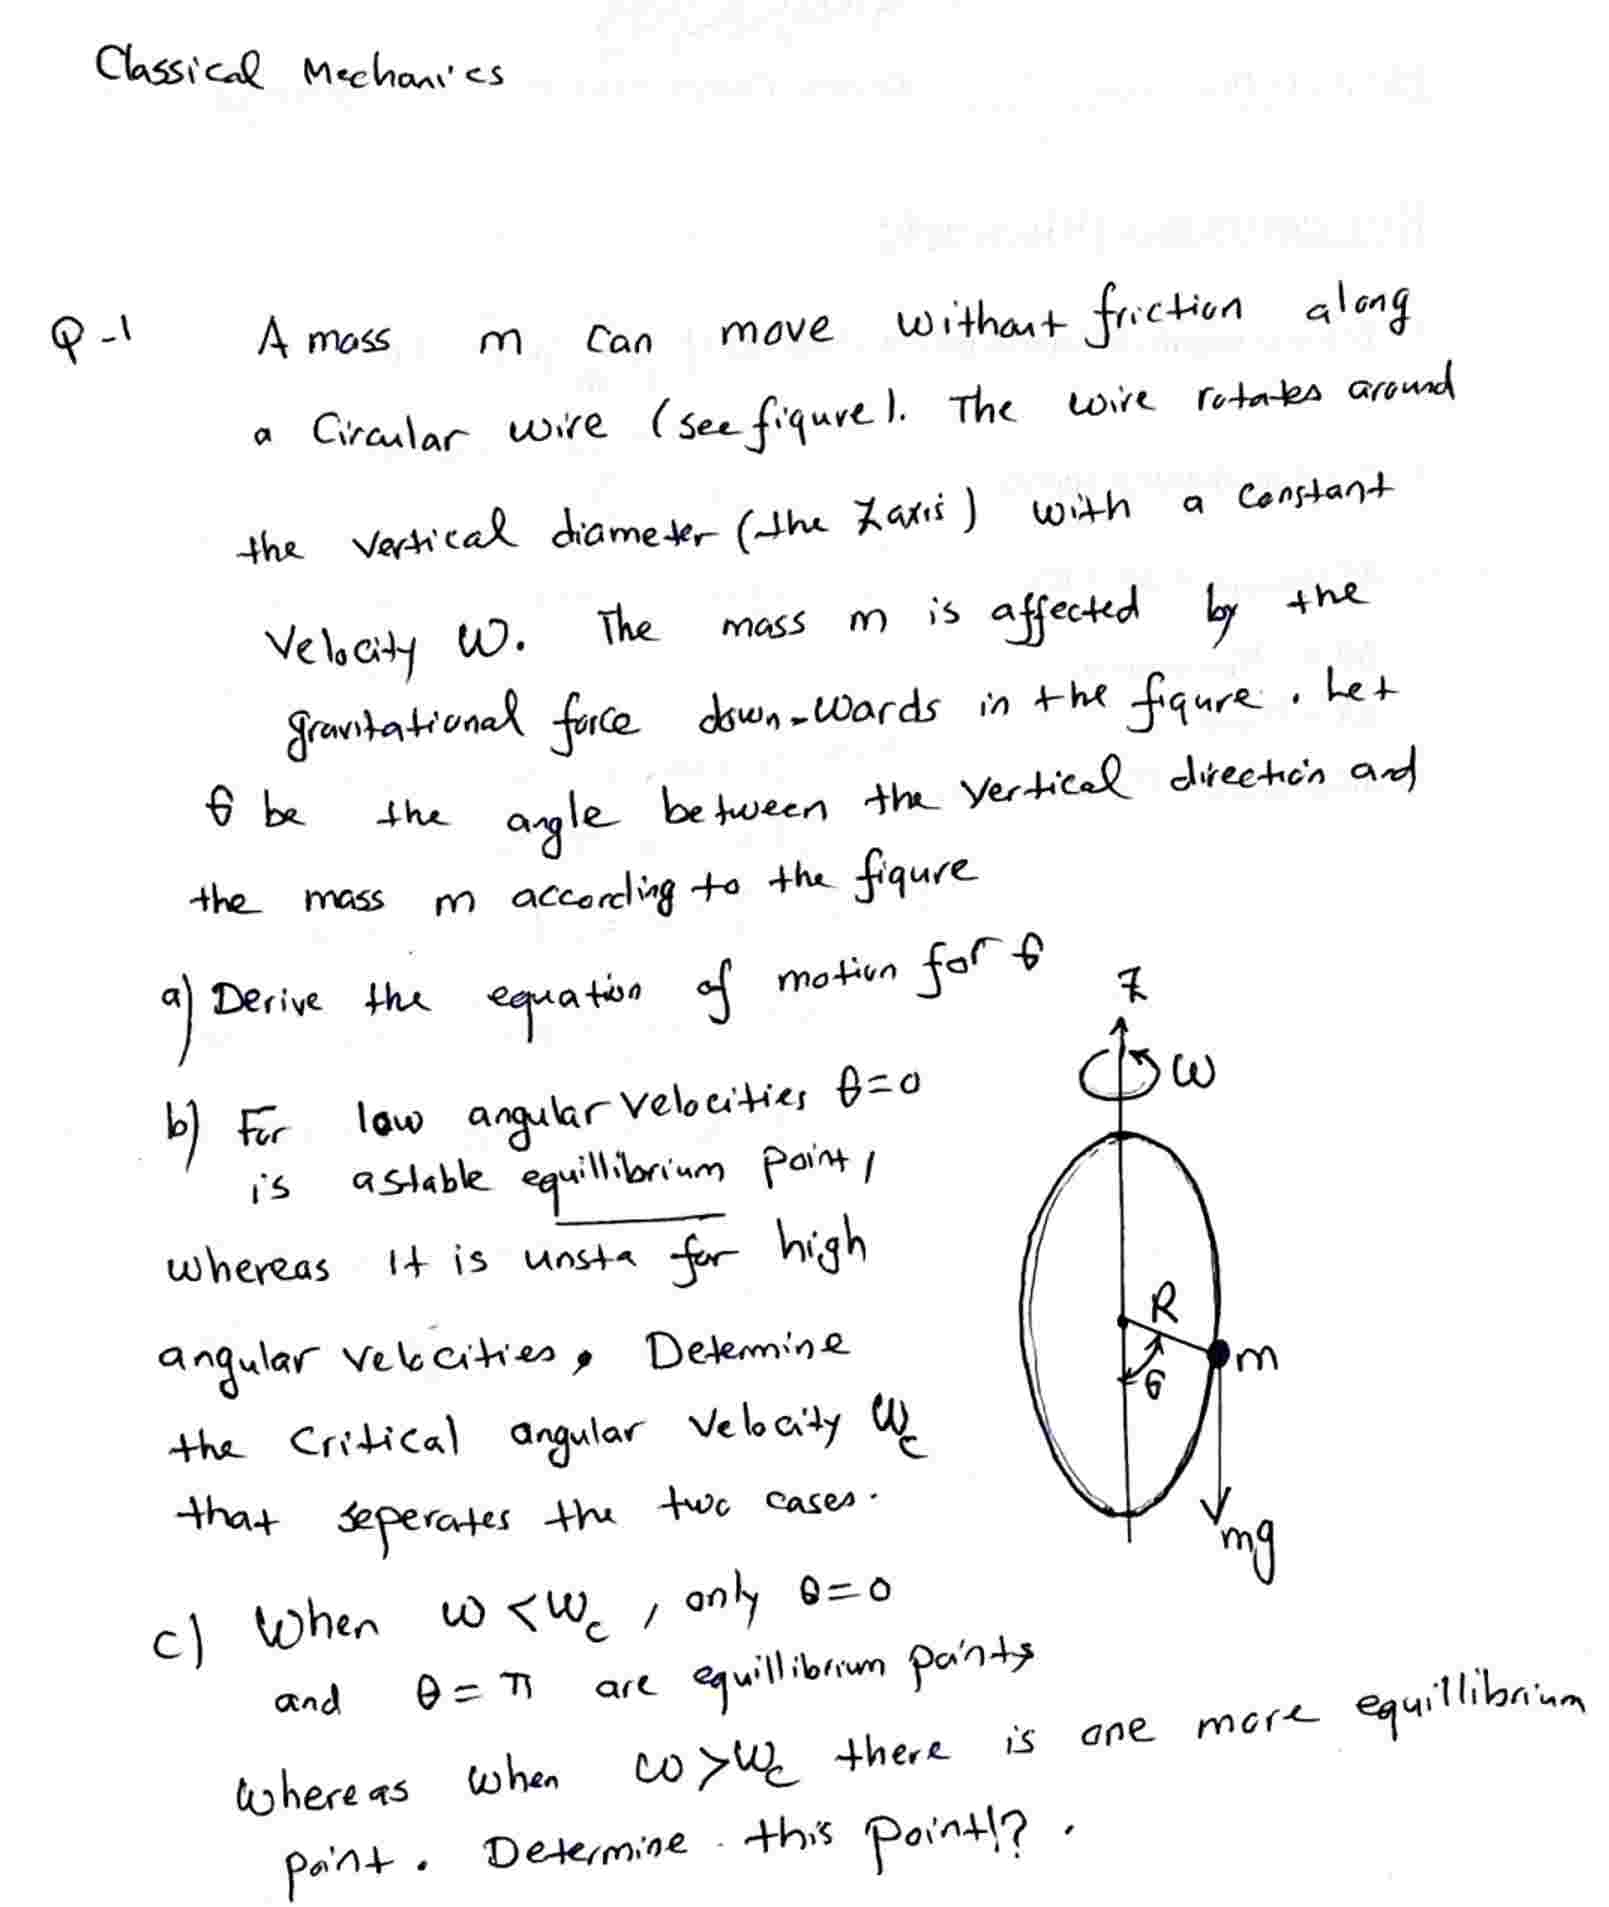 Classical Mechanics
Q-1 A mass m can move without friction along
a Circular wire (see figure). The wire rotates around
the vertical diameter (the Z axis) with a constant
Velocity ω. The mass m is affected by the
gravitational force down-wards in the figure. Let
θ be the angle between the vertical direction and
the mass m according to the figure
a) Derive the equation of motion for θ
b) For low angular velocities θ=0
is a stable equillibrium point,
whereas it is unsta for high
angular velocities, Determine
the critical angular velocity ω_c
that seperates the two cases.
c) When ω < ω_c, only θ=0
and θ = π are equillibrium points
whereas when ω > ω_c there is one more equillibrium
point. Determine this point!?.
Z
ω
R
m
θ
mg